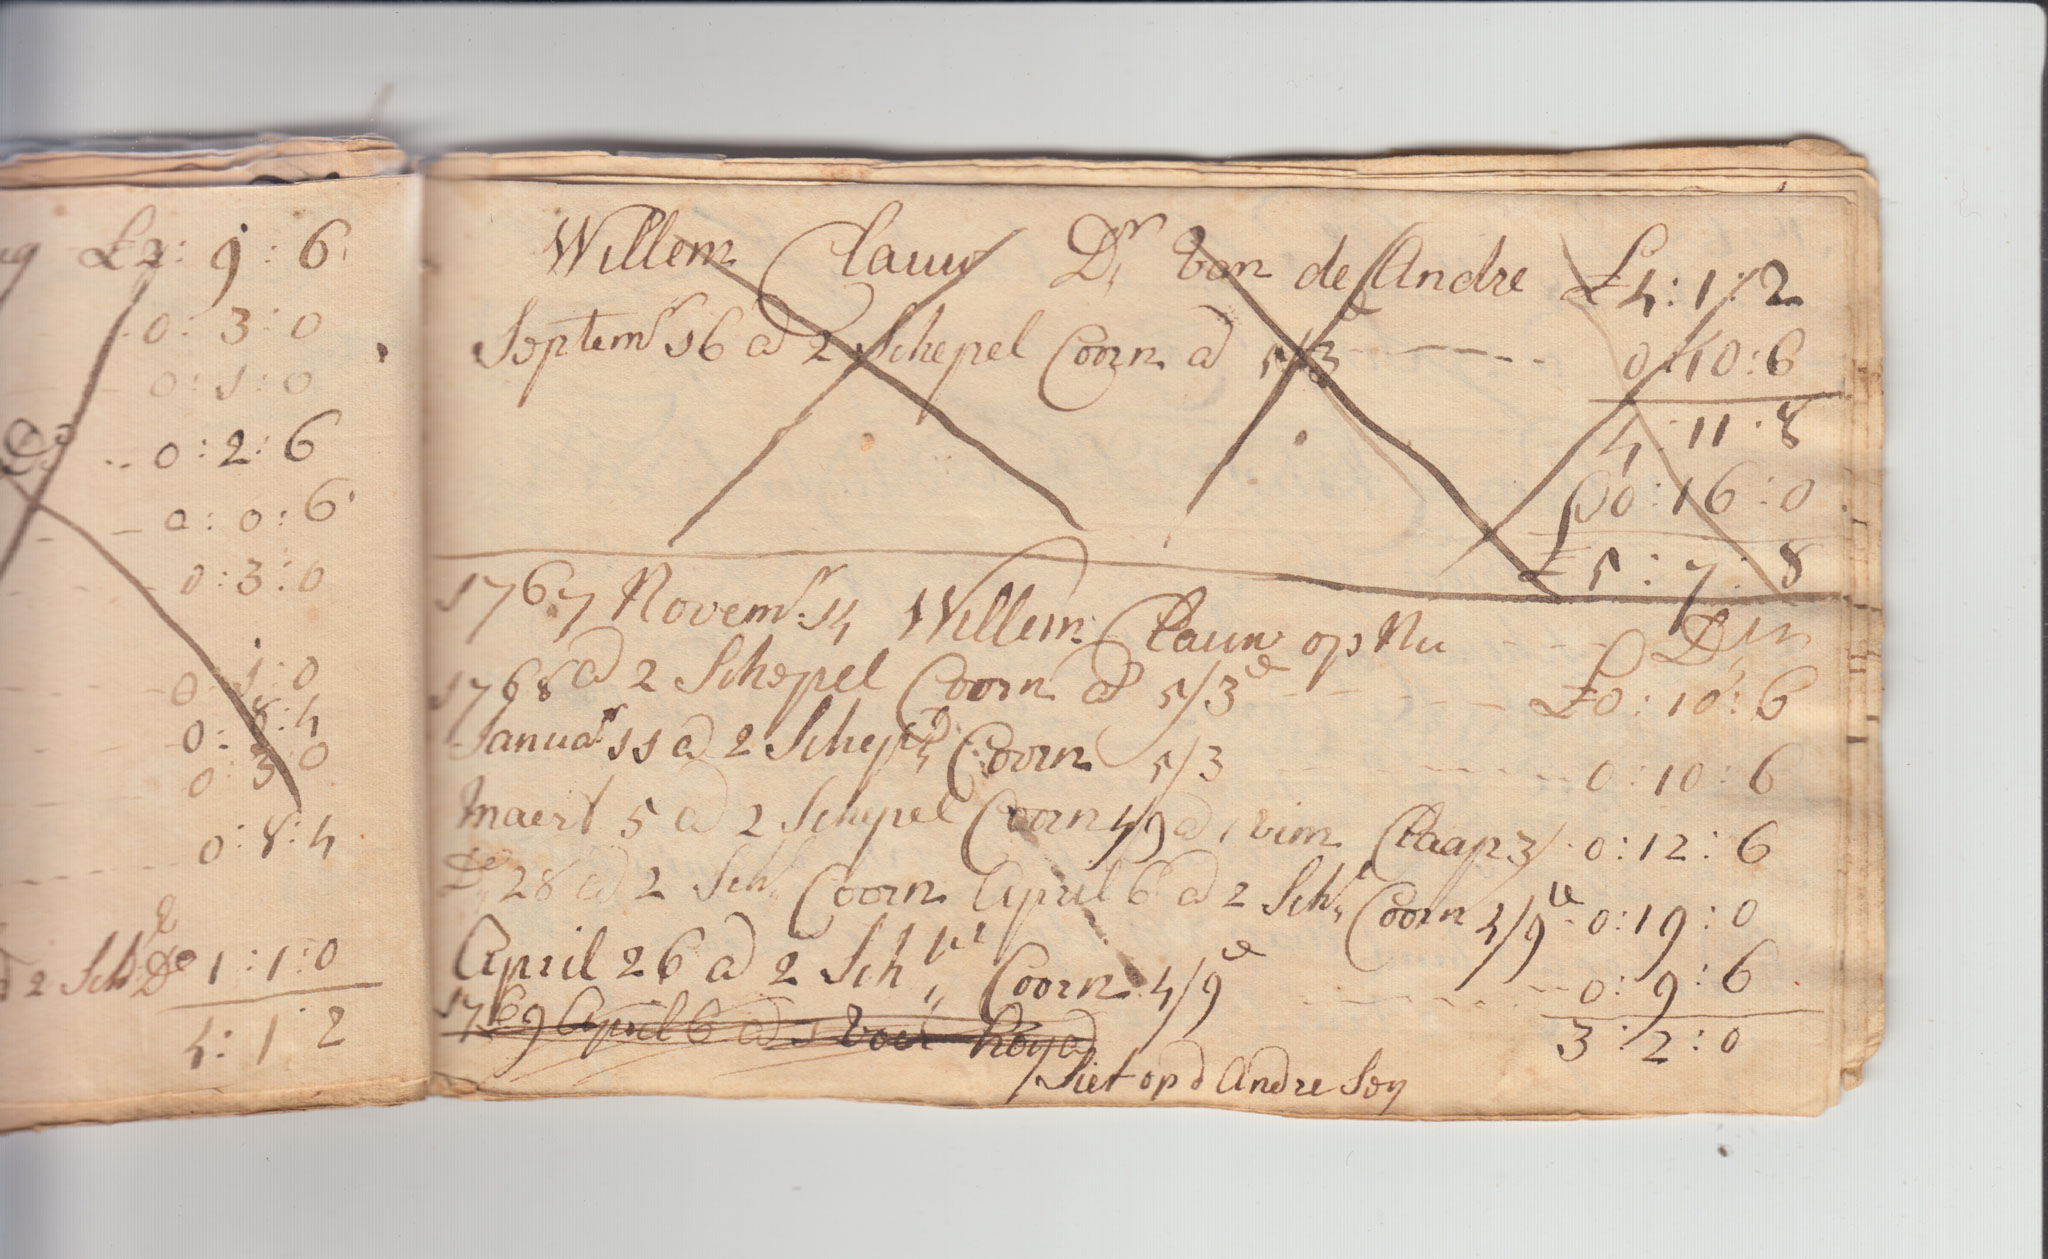 £2 : 9 : 6
0 : 3 : 0
0 : 1 : 0
Do 0 : 2 : 6
0 : 0 : 6
0 : 3 : 0
0 : 1 : 0
0 : 8 : 4
0 : 3 : 0
0 : 8 : 4
2 Sch Do 1 : 1 : 0
4 : 1 : 2
Willem Clauw Dr van de Andre £4 : 1 : 2
Septemr 16 ad 2 Schepel Coorn ad 5/3 0 : 10 : 6
4 : 11 : 8
0 : 16 : 0
£5 : 7 : 8
1767 Novemr 14 Willem Clauw op Nu Dr
1768 ad 2 Schepel Coorn ad 5/3 £0 : 10 : 6
Januar 11 ad 2 Schepl Coorn 5/3 0 : 10 : 6
Maert 5 ad 2 Schepel Coorn 4/9 ad 1 vim Claap 3/ 0 : 12 : 6
Do 28 ad 2 Sch Coorn April 6 ad 2 Schl Coorn 4/9 0 : 19 : 0
April 26 ad 2 Schl Coorn 4/9 0 : 9 : 6
1769 April 6 ad 1 voer hoy ad 3 : 2 : 0
Siet op d Andre Soy